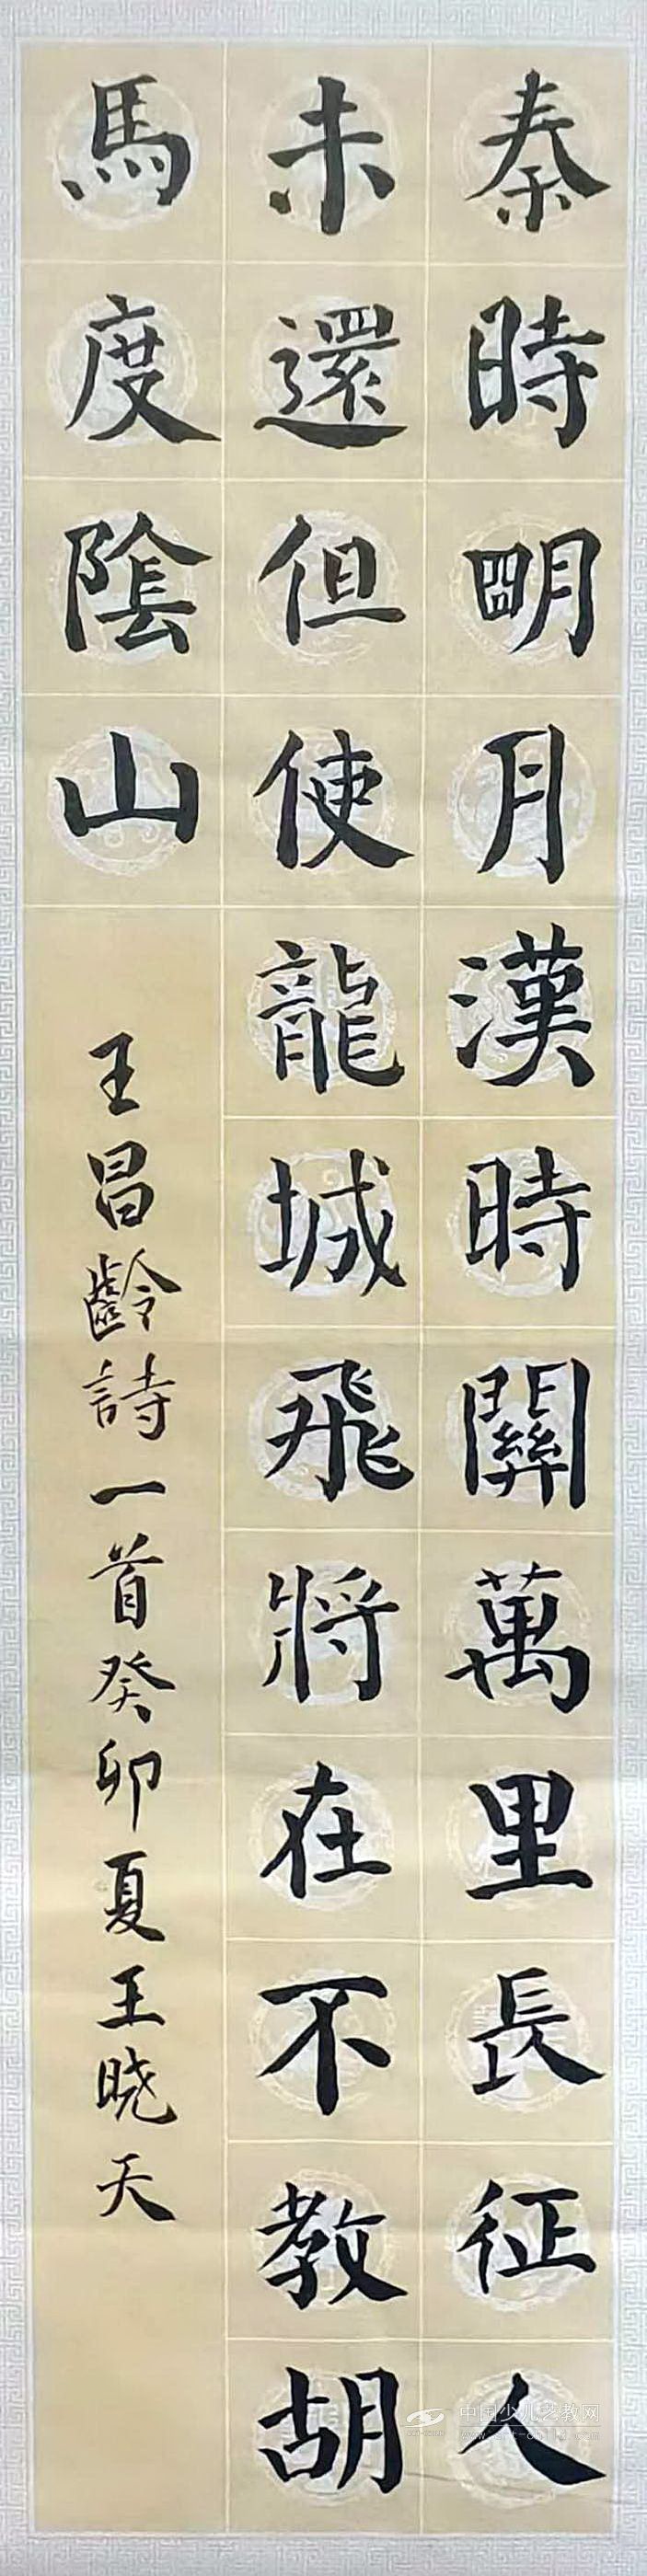 秦時明月漢時關萬里長征人
未還但使龍城飛將在不教胡
馬度陰山
王昌齡詩一首癸卯夏王晓天
中国少儿艺教网